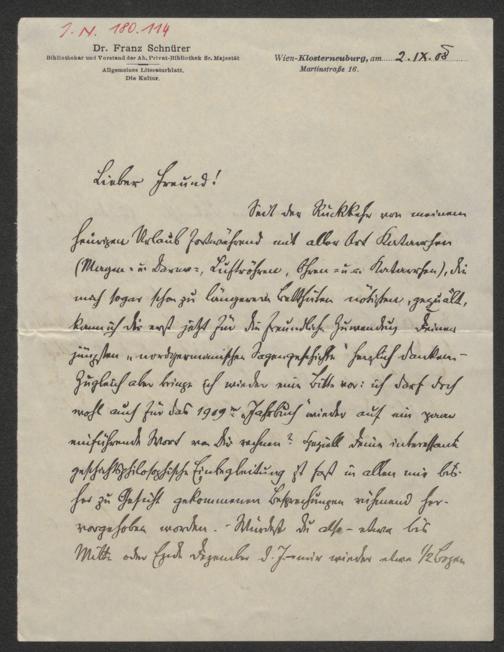 J. N. 180.114
Dr. Franz Schnürer
Bibliothekar und Vorstand der Ah. Privat-Bibliothek Sr. Majestät
Allgemeines Literaturblatt.
Die Kultur.
Wien-Klosterneuburg, am 2. IX. 08
Martinstraße 16.
Lieber Freund!
Seit der Rückkehr von meinem
heurigen Urlaub fortwährend mit aller Art Katarrhen
(Magen- u Darm-, Luftröhren, Ohren- u Katarrhen), die
mich sogar schon zu längerem Betthüten nötigten, gequält,
kann ich dir erst jetzt für die freundliche Zuwendung Deiner
jüngsten „nordgermanischen Sagengeschichte" herzlich danken.-
Zugleich aber bringe ich wieder eine Bitte vor: ich darf doch
wohl auch für das 1909er „Jahrbuch" wieder auf ein paar
einführende Wort von Dir rechnen? Speziell Deine interessante
geschichtsphilosophische Einbegleitung ist fast in allen mir bis-
her zu Gesicht gekommenen Besprechungen rühmend her-
vorgehoben worden. - Würdest du also - etwa bis
Mitte oder Ende Dezember d. J. - mir wieder etwa 1/2 Bogen